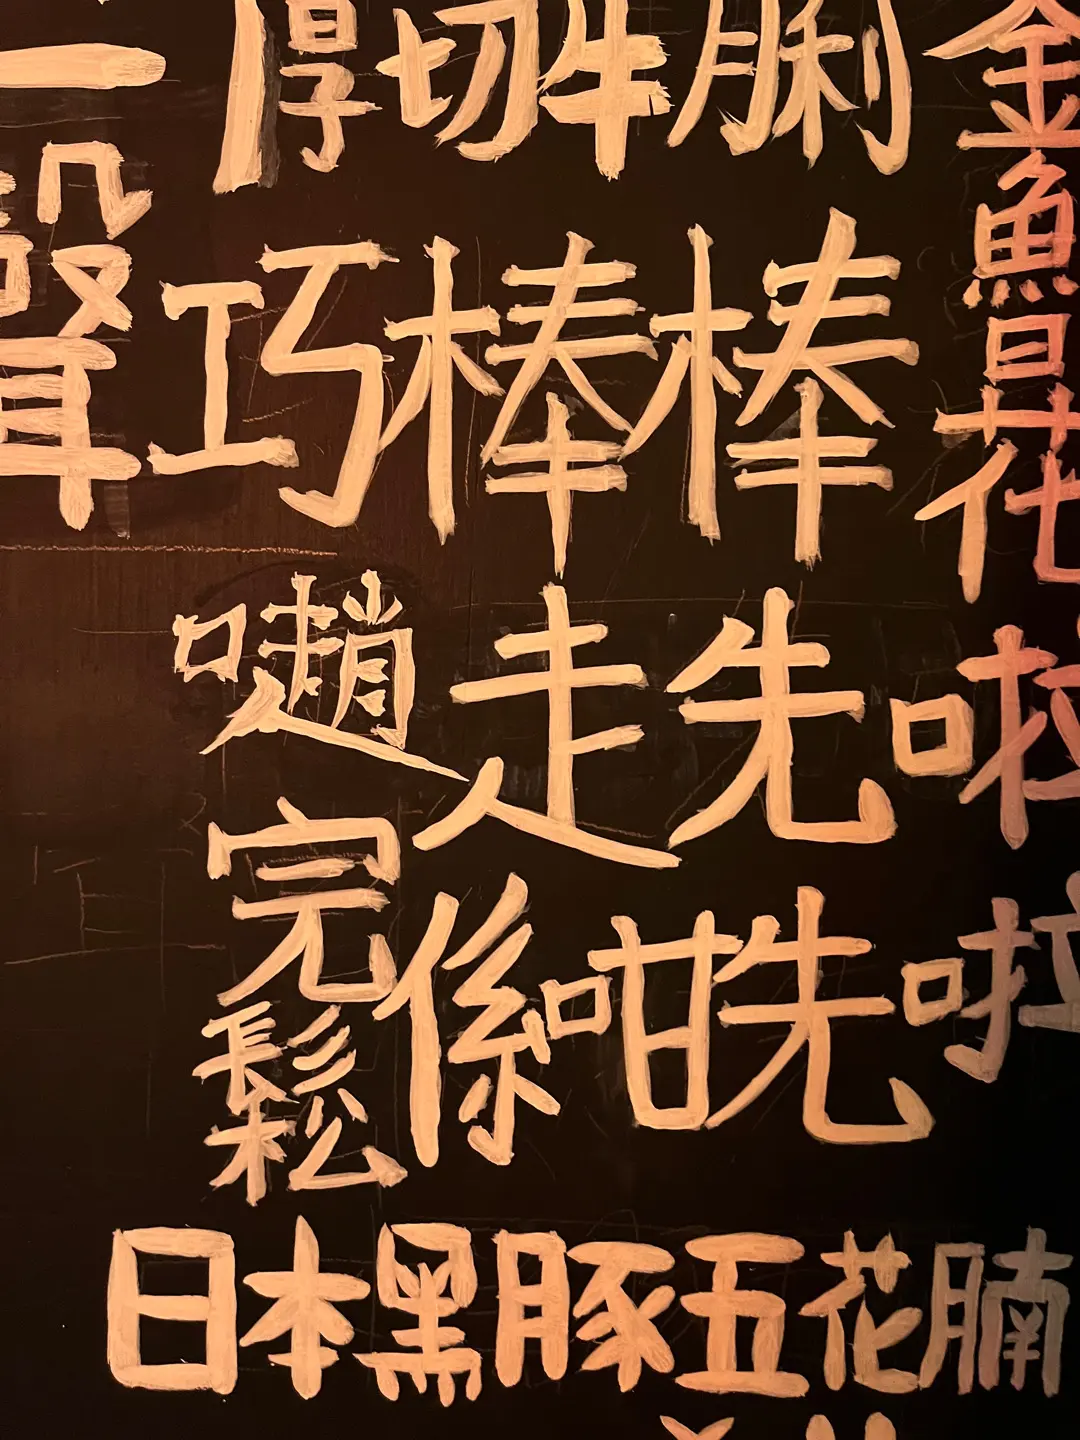 厚切牛脷
金魚旦花
聲
巧棒棒
走先啦
完鬆
係咁先啦
日本黑豚五花腩